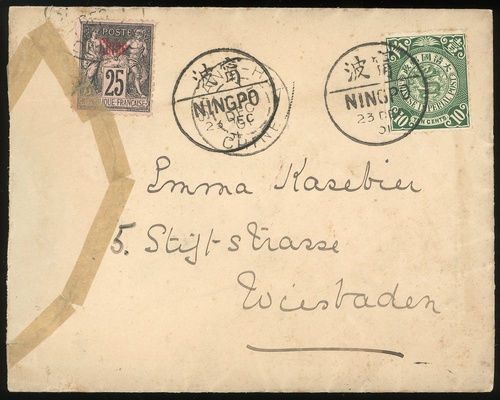 POSTE
Chine
25
RÉPUBLIQUE FRANÇAISE
波甯
NINGPO
23 DEC
CHINE
波甯
NINGPO
23 DE
IMPERIAL POST
10 TEN CENTS 10
Emma Kasebier
5. Stift-strasse
Wiesbaden